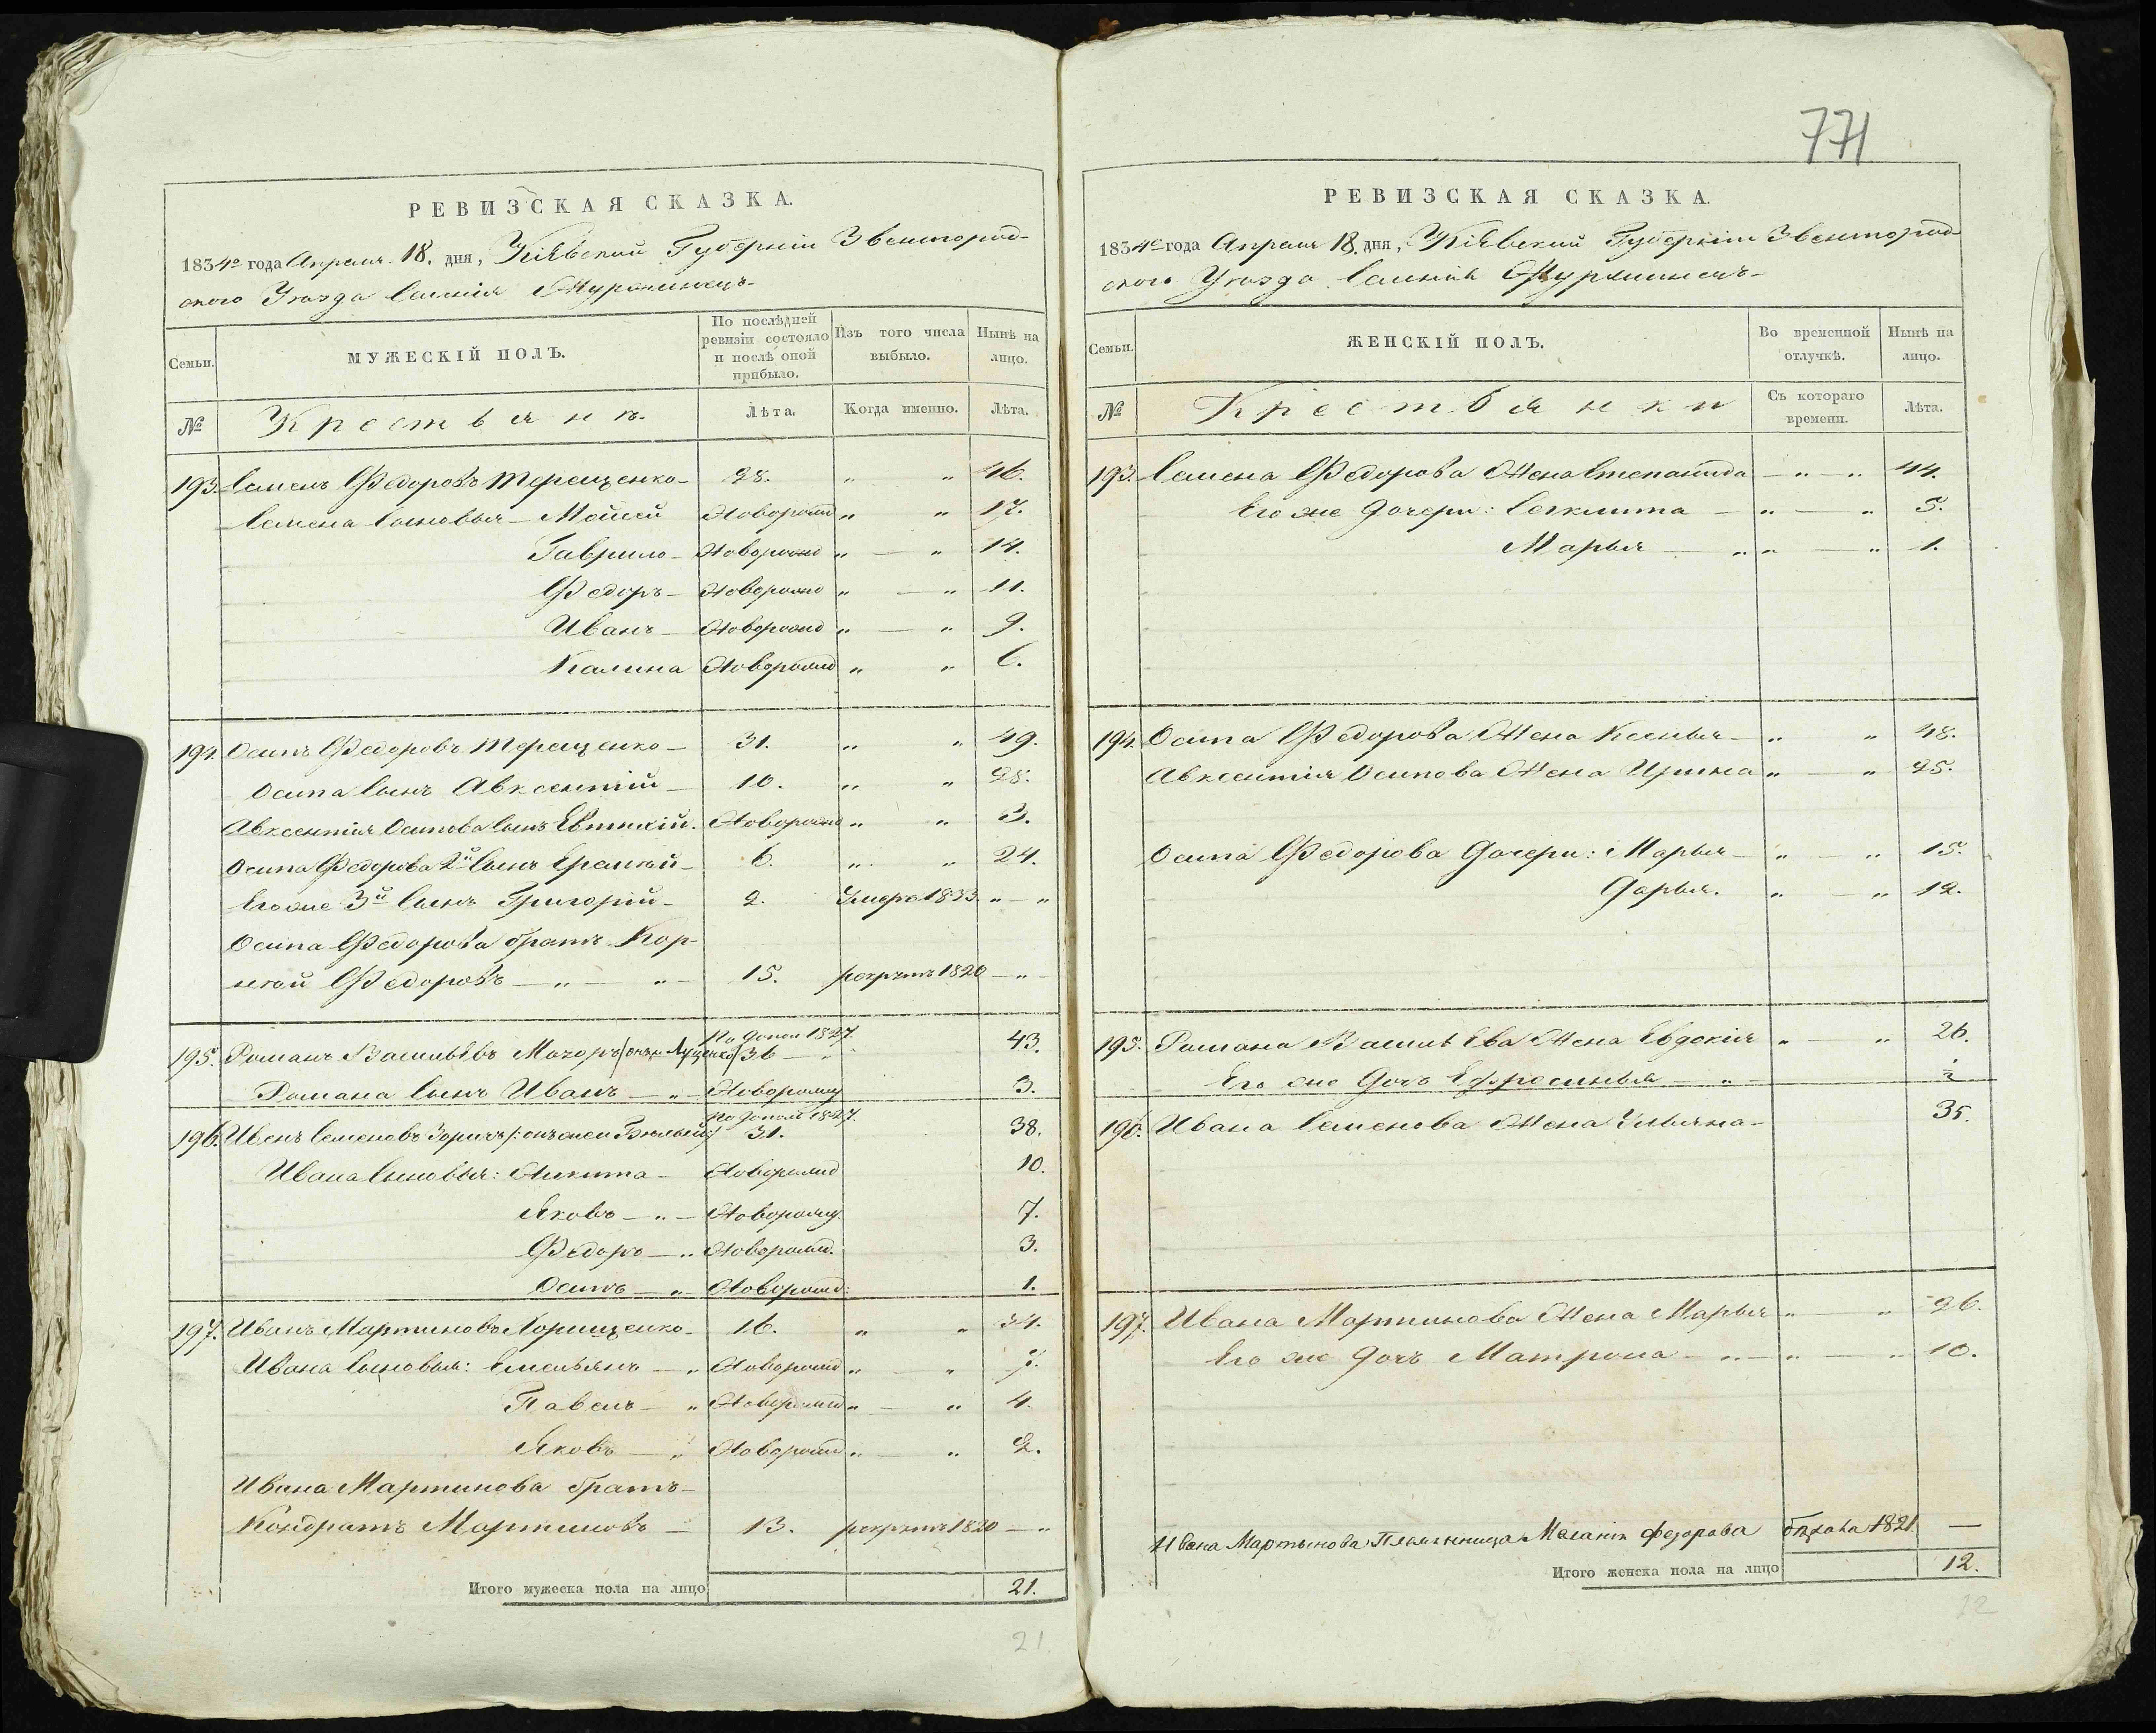 РЕВИЗСКАЯ СКАЗКА.
1834го года Апреля 18. дня, Кіевской Губерніи Звенигород-
ского Уезда Селенія Журжинецъ-
Семьи.
МУЖЕСКІЙ ПОЛЪ.
По послѣдней ревизіи состояло и послѣ оной прибыло.
Изъ того числа выбыло.
Нынѣ на лицо.
№
Крестьяне.
Лѣта.
Когда именно.
Лѣта.
193. Семенъ Федоровъ Терещенко- 28. " " 46.
Семена сыновья - Мойсей Новорожд " " 17.
Гаврило - Новорожд " — " 14.
Федоръ - Новорожд " — " 11.
Иванъ - Новорожд " — " 9.
Калина Новорожд " " 6.
194. Осипъ Федоровъ Терещенко - 31. " " 49.
Осипа сынъ Авксентій - 10. " " 28.
Авксентія Осипова сынъ Евтихій. Новорожд " " 3.
Осипа Федорова 2й сынъ Еремѣй - 6. " " 24.
Его же 3й сынъ Григорій - 2. Умеръ 1833. " — "
Осипа Федорова братъ Кор-
нѣй Федоровъ — " — " - 15. рекрутъ 1820 — " —
195. Романъ Васильевъ Мочоръ (онъ Луценко) По допол 1827. 36 — " 43.
Романа сынъ Иванъ — " — Новорожд 3.
196. Иванъ Семеновъ Зоричъ (: онъ же Бѣлый :) По допол 1827. 31. 38.
Ивана сыновья: Никита - Новорожд 10.
Яковъ — " — Новорожд 7.
Федоръ — " Новорожд. 3.
Осипъ — " Новорожд: 1.
197. Иванъ Мартиновъ Хорищенко - 16. " " 34.
Ивана сыновья: Емельянъ — " Новорожд " — " 7.
Павелъ — " Новорожд " — " 4.
Яковъ — " Новорожд " — " 2.
Ивана Мартинова братъ -
Кондратъ Мартиновъ — 13. рекрутъ 1820 — "
Итого мужеска пола на лицо 21.
21.
771
РЕВИЗСКАЯ СКАЗКА.
1834го года Апреля 18. дня, Кіевской Губерніи Звенигород-
ского Уезда Селенія Журжинецъ-
Семьи.
ЖЕНСКІЙ ПОЛЪ.
Во временной отлучкѣ.
Нынѣ на лицо.
№
Крестьянки
Съ котораго времени.
Лѣта.
193. Семена Федорова Жена Степанида — " — " 44.
Его же дочери: Секлита — " — " 5.
Марья — " " — " 1.
194. Осипа Федорова Жена Ксенья — " " 48.
Авксентія Осипова Жена Ирина " — " 25.
Осипа Федорова дочери: Марья — " — " 15.
Дарья. " — " 12.
195. Романа Васильева Жена Евдокія " — " 26.
Его же дочь Ефросинья — " —
196. Ивана Семенова Жена Ульяна - 35.
197. Ивана Мартинова Жена Марья " — " 26.
Его же дочь Матрона — " — " — " 10.
Ивана Мартынова Племянница Меланія Федорова бѣжала 1821. —
Итого женска пола на лицо 12.
12